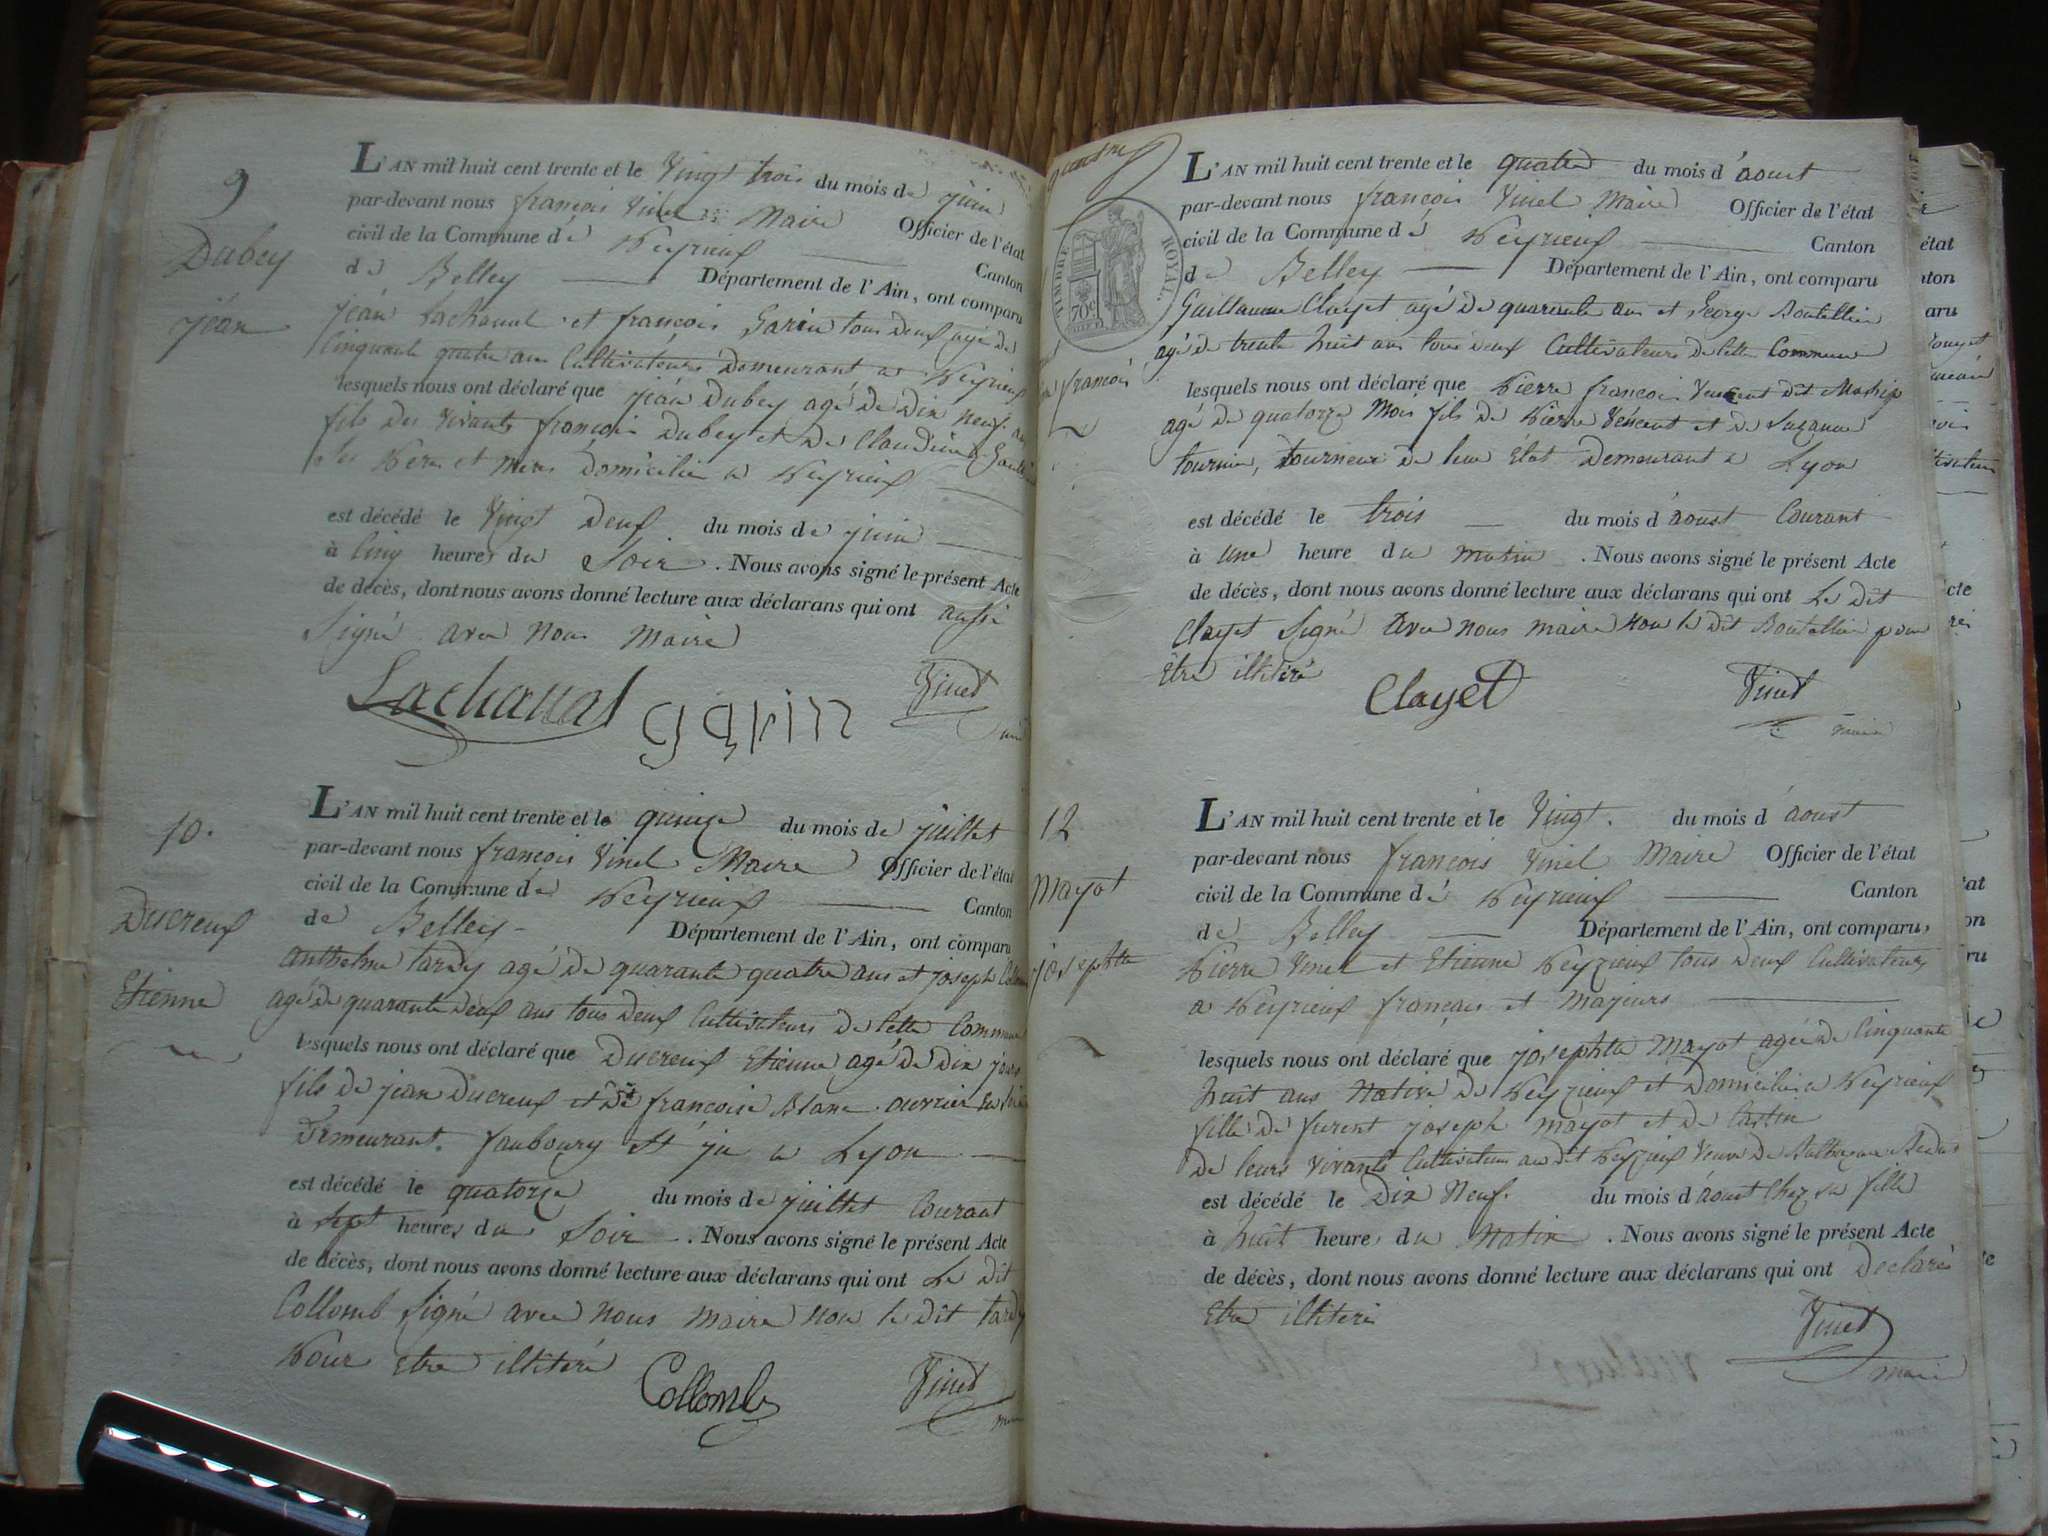 9
Dubey
jean
L'AN mil huit cent trente et le Vingt trois du mois de juin
par-devant nous françois Vinet Maire Officier de l'état
civil de la Commune de Peyrieux Canton
de Belley Département de l'Ain, ont comparu
jean Lachanal et françois Garin tous deux agé de
Cinquante quatre ans Cultivateurs Demeurant a Peyrieux
lesquels nous ont déclaré que jean Dubey agé de Dix neuf ans
fils des vivants françois Dubey et de Claudine
Ses Pere et mere Domicilié a Peyrieux
est décédé le Vingt Deux du mois de juin
à Cinq heures du Soir . Nous avons signé le présent Acte
de décès, dont nous avons donné lecture aux déclarans qui ont aussi
Signé avec nous maire
Lachanal garin Vinet
10.
Ducreux
Etienne
L'AN mil huit cent trente et le quinze du mois de juillet
par-devant nous françois Vinet Maire Officier de l'état
civil de la Commune de Peyrieux Canton
de Belley Département de l'Ain, ont comparu
Anthelme tardy agé de quarante quatre ans et joseph
agé de quarante deux ans tous deux Cultivateurs de Cette Commune
lesquels nous ont déclaré que Ducreux Etienne agé de Dix jours
fils de jean Ducreux et De françoise Blanc ouvrier
Demeurant faubourg St a Lyon
est décédé le quatorze du mois de juillet Courant
à Sept heures du Soir . Nous avons signé le présent Acte
de décès, dont nous avons donné lecture aux déclarans qui ont Le Dit
Collomb Signé avec nous maire non le Dit tardy
Pour Etre illitéré
Collomb Vinet
TIMBRE ROYAL
70c
françois
L'AN mil huit cent trente et le quatre du mois d'aoust
par-devant nous françois Vinet Maire Officier de l'état
civil de la Commune de Peyrieux Canton
de Belley Département de l'Ain, ont comparu
Guillaume Clayet agé De quarante ans et George Boutellier
agé de trente huit ans tous deux Cultivateurs de Cette Commune
lesquels nous ont déclaré que Pierre françois Vencent Dit
agé De quatorze Mois fils de Pierre Vencent et de Suzanne
tournier, tourneur de leur Etat Demeurant a Lyon
est décédé le trois du mois d'aoust Courant
à une heure du matin . Nous avons signé le présent Acte
de décès, dont nous avons donné lecture aux déclarans qui ont Le Dit
Clayet Signé avec nous maire non le dit Boutellier pour
Etre illitéré
Clayet Vinet
maire
12
Mayot
josephte
L'AN mil huit cent trente et le Vingt. du mois d'aoust
par-devant nous françois Vinet Maire Officier de l'état
civil de la Commune de Peyrieux Canton
de Belley Département de l'Ain, ont comparu,
Pierre Vinet et Etienne Peyzieux tous deux Cultivateurs
a Peyrieux français et Majeurs
lesquels nous ont déclaré que josephte Mayot agée De Cinquante
huit ans Native De Peyzieux et Domicilié a Peyrieux
fille De furent joseph mayot et de
De leurs vivants Cultivateurs au Dit Peyzieux Veuve De
est décédé le Dix Neuf du mois d'aoust Chez sa fille
à huit heure du Matin . Nous avons signé le présent Acte
de décès, dont nous avons donné lecture aux déclarans qui ont Declaré
Etre illiteré
Vinet
maire